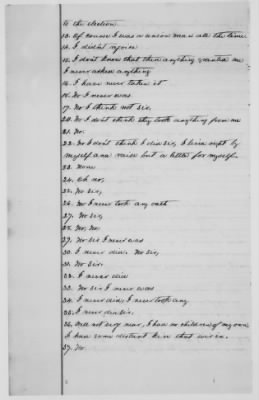 to the election.
13. Of course I was a union man all the time
14. I didn't rejoice
15. I don't know that then anything wanted me
I never asked anything
16. I have never taken it
16. No I never was
17. No I think not sir.
20. No I don't think they took anything from me
21. No.
22. No I don't think I did sir, I live right by
myself and raise but a little for myself.
23. None
24. Oh no,
25. No sir,
26. No I never took any oath
27. No sir,
28. No, No
29. No sir I never was
30. I never did. No sir,
31. No sir.
32. I never did
33. No sir I never was
34. I never did, I never took any
35. I never did sir.
36. Well not very near, I had no children of my own,
I had some distant kin that were in.
37. No